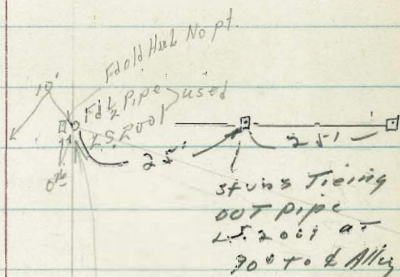 Fd old Hub No pt.
10'
Fd ½ Pipe
L.S. 2001
used
25'
25'
stubs Tieing
OUT pipe
L.S. 2001 at
90° to ₵ Alley